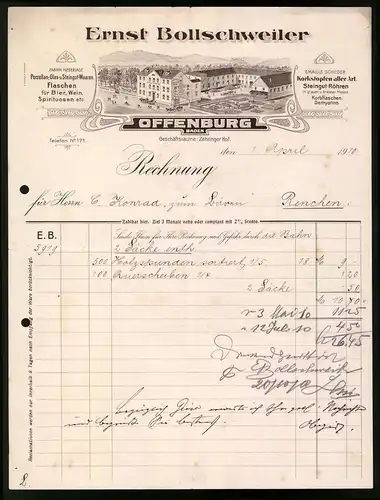 Ernst Bollschweiler
FABRIK-NIEDERLAGE
Porzellan-Glas & Steingut-Waaren
Flaschen
für Bier, Wein,
Spirituosen etc.
EMAILLE SCHILDER
Korkstopfen aller Art.
Steingut-Röhren
Korbflaschen,
Demyohns
OFFENBURG
BADEN
Telefon No 171.
Geschäftsräume: Zähringer Hof.
den April 1910.
Rechnung
für Herrn C. Konrad, "zum Löwen" Renchen.
Zahlbar hier. Ziel 3 Monate netto oder comptant mit 2% Sconto.
E. B. Sende Ihnen für Ihre Rechnung und Gefahr durch die Bahn
5929 2 Säcke enth.
500 Holzspunden sortiert 18 9 -
100 Querscheiben 1 20
2 Säcke - 50
10.70
v 3 Mai 10 11 25
v 12 Juli 10 4 50
26.45
Bollschweiler
Reclamationen werden nur innerhalb 8 Tagen nach Empfang der Ware berücksichtigt.